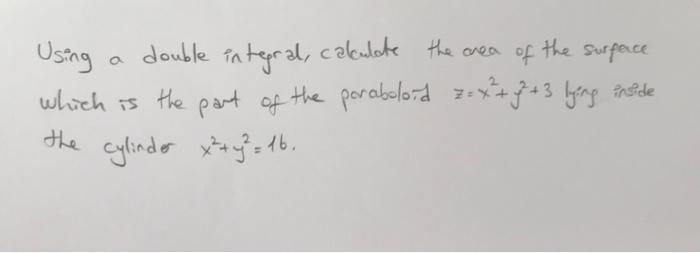 Using a double integral, calculate the area of the surface
which is the part of the paraboloid z=x²+y²+3 lying inside
the cylinder x²+y²=16.